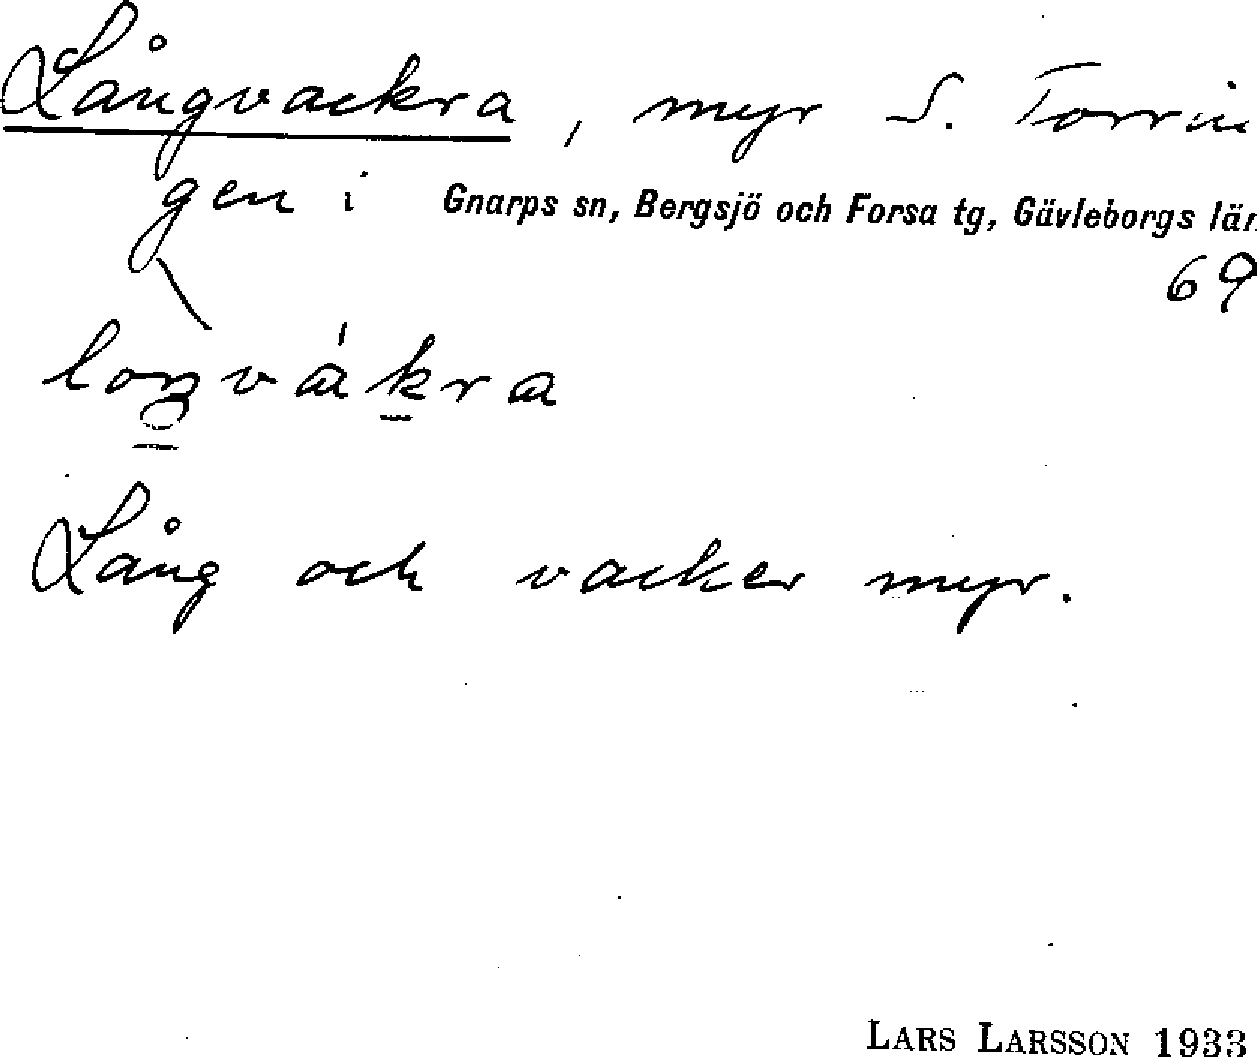 Långvackra, myr S. Torrin
gen i Gnarps sn, Bergsjö och Forsa tg, Gävleborgs län
69
Lång och vacker myr.
LARS LARSSON 1933